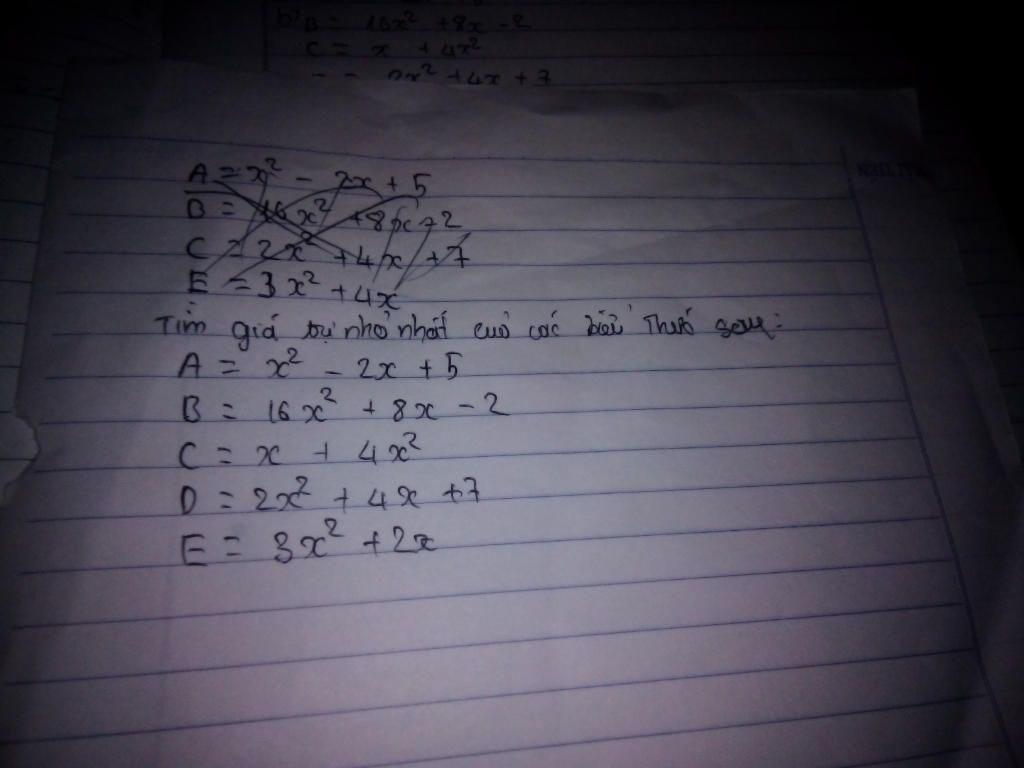 b> B = 16x² + 8x - 2
C = x + 4x²
2x² + 4x + 7
A = x² - 2x + 5
B = 16x² + 8x - 2
C = 2x² + 4x + 7
E = 3x² + 4x
Tìm giá trị nhỏ nhất của các biểu thức sau:
A = x² - 2x + 5
B = 16x² + 8x - 2
C = x + 4x²
D = 2x² + 4x + 7
E = 3x² + 2x